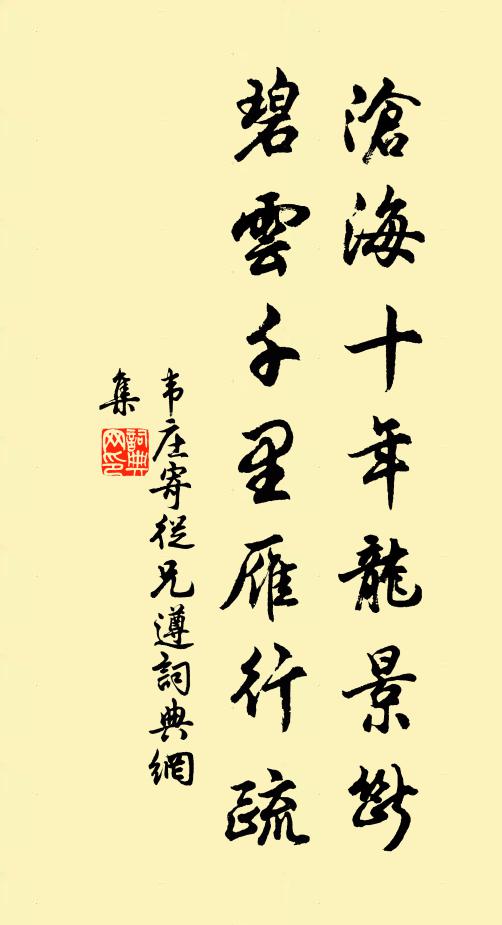 滄海十年龍景斷
碧雲千里雁行疏
韦庄寄從兄遵詞典網
集
詞典網印